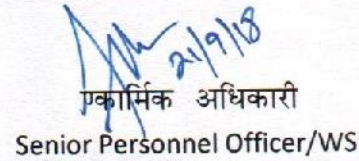 21/9/18
एकार्मिक अधिकारी
Senior Personnel Officer/WS